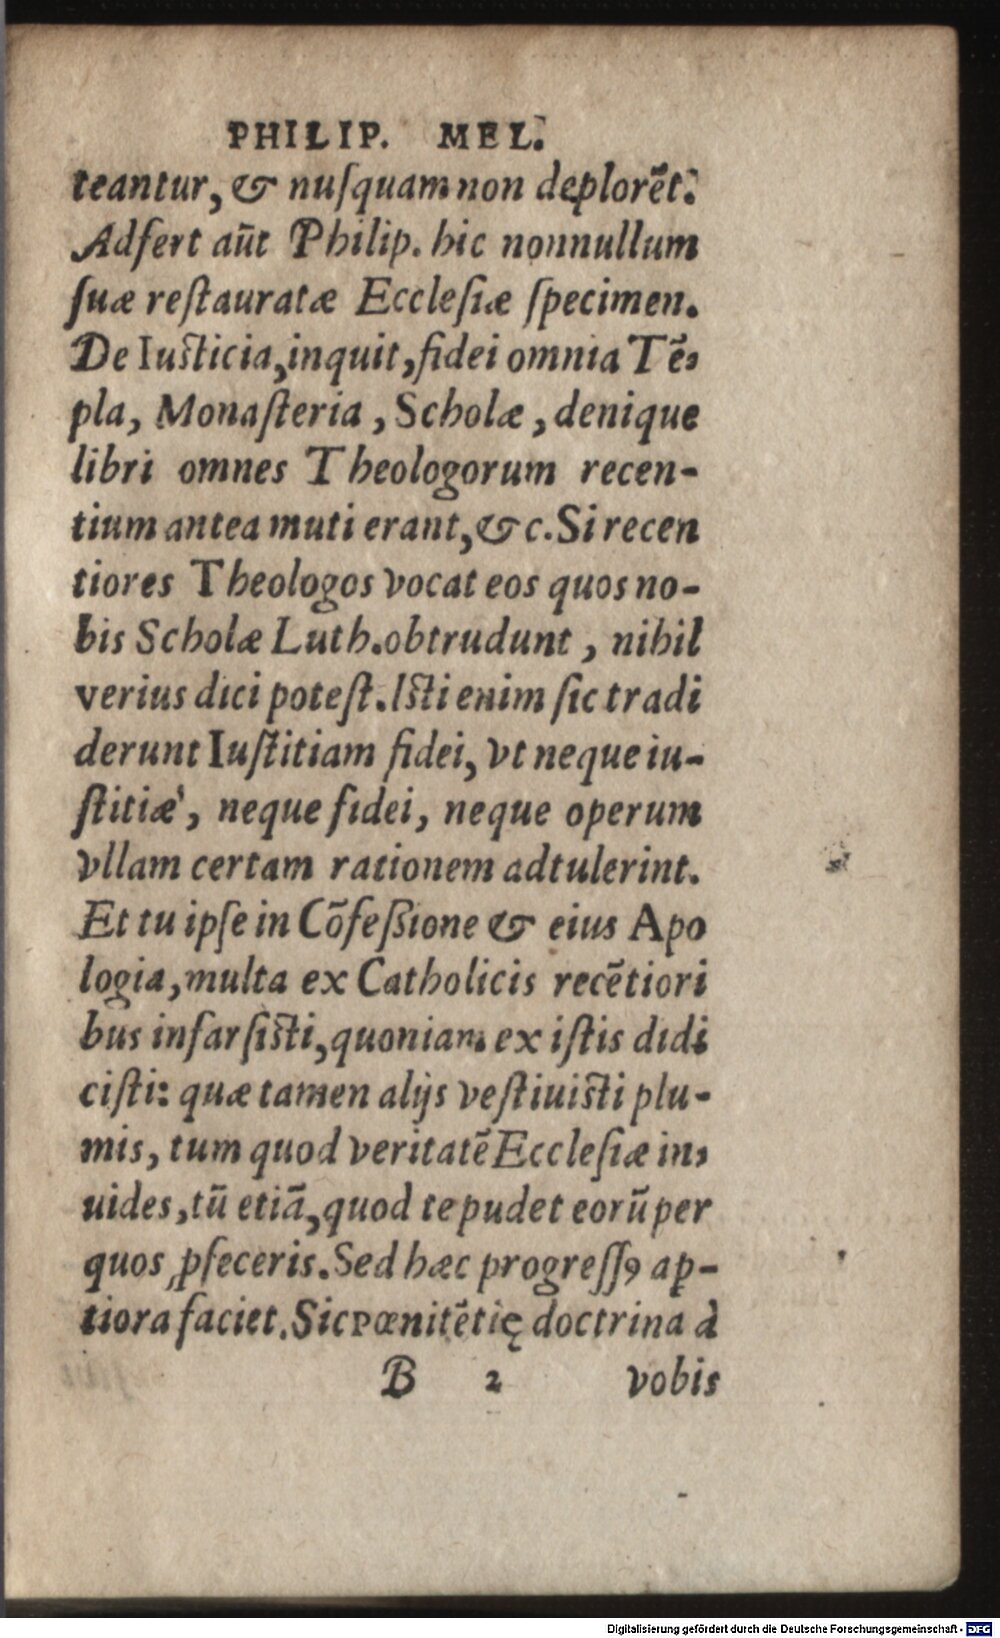 PHILIP. MEL.
teantur, & nuſquam non deplorēt.
Adfert aūt Philip. hic nonnullum
ſuæ reſtauratæ Eccleſiæ ſpecimen.
De Iuſticia, inquit, fidei omnia Tē⸗
pla, Monaſteria, Scholæ, denique
libri omnes Theologorum recen-
tium antea muti erant, &c. Si recen
tiores Theologos vocat eos quos no-
bis Scholæ Luth. obtrudunt, nihil
verius dici poteſt. Iſti enim ſic tradi
derunt Iuſtitiam fidei, vt neque iu-
ſtitiæ, neque fidei, neque operum
vllam certam rationem adtulerint.
Et tu ipſe in Cōfeßione & eius Apo
logia, multa ex Catholicis recētiori
bus infarſiſti, quoniam ex iſtis didi
ciſti: quæ tamen alijs veſtiuiſti plu-
mis, tum quod veritatē Eccleſiæ in⸗
uides, tū etiā, quod te pudet eorū per
quos ꝓfeceris. Sed hæc progreſſꝰ ap-
tiora faciet. Sic pœnitētię doctrina à
B 2 vobis
Digitalisierung gefördert durch die Deutsche Forschungsgemeinschaft - DFG